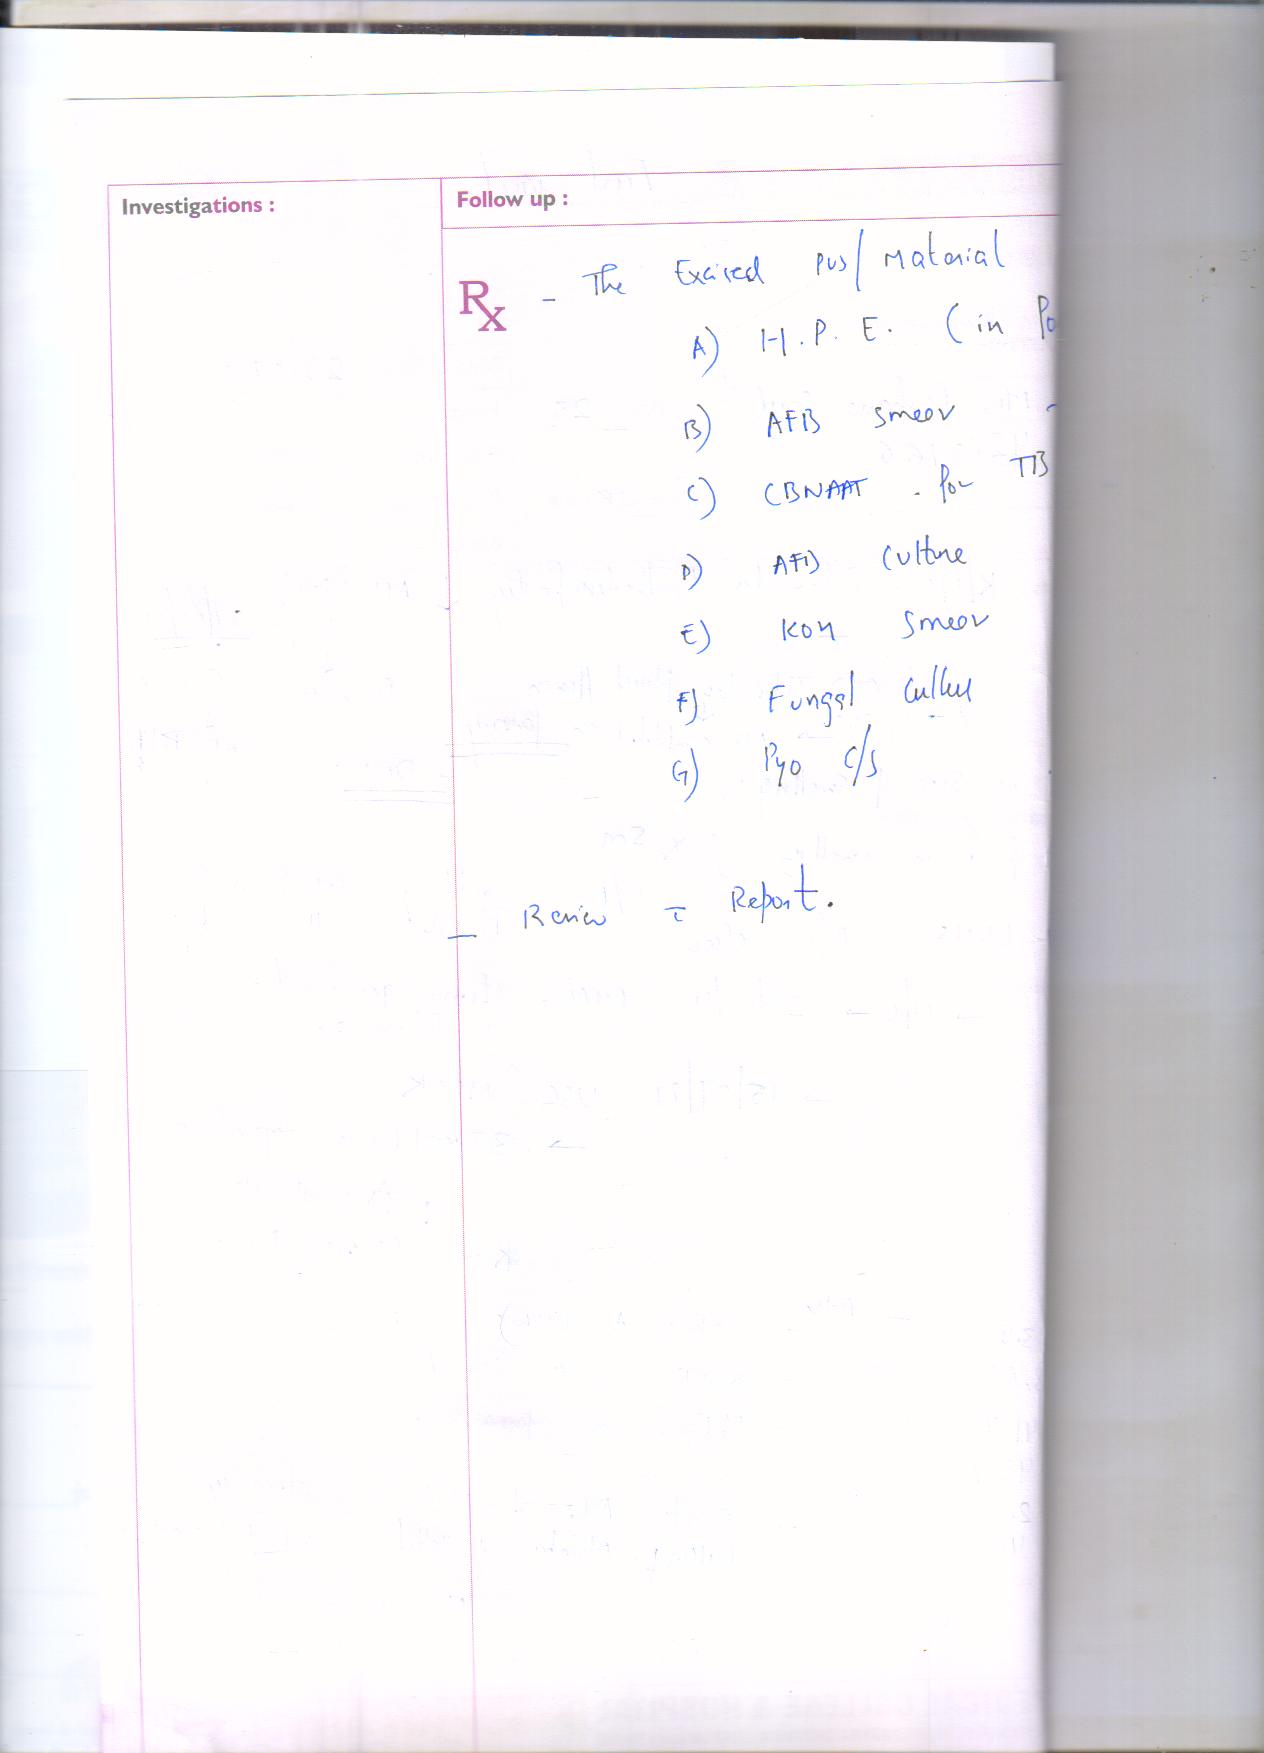 Investigations :
Follow up :
Rx - The Excised pus/Material
A) H.P.E. (in
B) AFB Smear
C) CBNAAT . for TB
D) AFB Culture
E) KOH Smear
F) Fungal Culture
G) Pyo c/s
- Review c̄ Report.